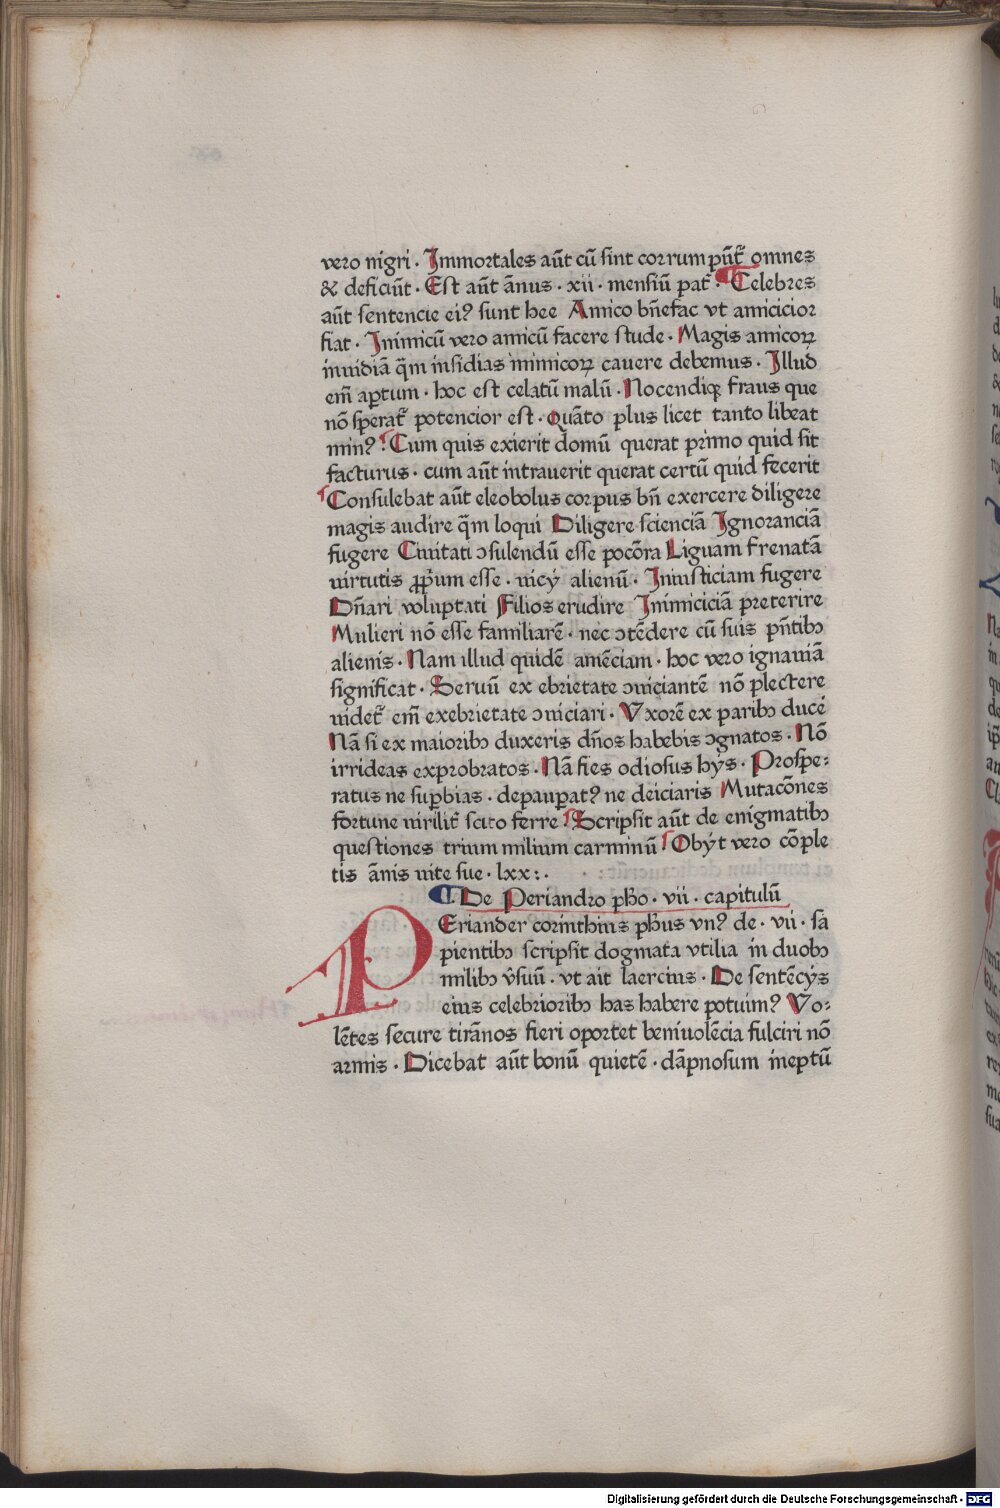 vero nigri · Immortales aūt cū sint corrumpūt᷑ omnes
& deficiūt · Est aūt ānus · xii · mensiū pat᷑ · Celebres
aūt sentencie eiꝰ sunt hee Amico bn̄efac vt amicicior
fiat · Inimicū vero amicū facere stude · Magis amicoꝝ
inuidiā q̄m insidias inimicoꝝ cauere debemus · Illud
em̄ apertum · hoc est celatū malū · Nocendiqꝫ fraus que
nō sperat᷑ potencior est · Quāto plus licet tanto libeat
minꝰ · Cum quis exierit domū querat primo quid sit
facturus · cum aūt intrauerit querat certū quid fecerit
Consulebat aūt eleobolus corpus bn̄ exercere diligere
magis audire q̄m loqui Diligere scienciā Ignoranciā
fugere Ciuitati ꝯsulendū esse pocōra Liguam frenatā
uirtutis ꝓpͥum esse · uicÿ alienū · Iniusticiam fugere
Dn̄ari voluptati Filios erudire Inimiciciā preterire
Mulieri nō esse familiarē · nec ꝯtēdere cū suis pn̄tibꝫ
alienis · Nam illud quidē amēciam · hoc vero ignauiā
significat · Seruū ex ebrietate ꝯuiciantē nō plectere
uidet᷑ em̄ exebrietate ꝯuiciari · Vxorē ex paribꝫ duce
Nā si ex maioribꝫ duxeris dn̄os habebis ꝯgnatos · Nō
irrideas exprobratos · Nā fies odiosus hÿs · Prospe:
ratus ne suꝑbias · depauꝑatꝰ ne deiciaris Mutacōnes
fortune uirilit᷑ scito ferre Scripsit aūt de enigmatibꝫ
questiones trium milium carminū Obÿt vero cōple
tis ānis uite sue · lxx : ·
De Periandro ph̄o · vii · capitulū
PEriander corinthius ph̄us vnꝰ de · vii · sa
pientibꝫ scripsit dogmata vtilia in duobꝫ
milibꝫ v̄suū · vt ait laercius · De sentēcÿs
eius celebrioribꝫ has habere potuimꝰ Vo:
lētes secure tirānos fieri oportet beniuolēcia fulciri nō
armis · Dicebat aūt bonū quietē · dāpnosum ineptū